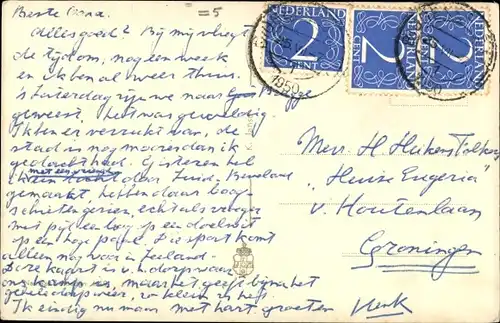 Beste Oma.
Alles goed? Bij mij vliegt
de tijd om, nog een week
en ik ben al weer thuis.
's Zaterdags zijn we naar Brugge
geweest, het was geweldig.
Ik ben er verrukt van, de
stad is nog mooier dan ik
gedacht had. Gisteren heb
met een vriend
ik een tocht door Zuid-Beveland
gemaakt, hebben daar boog-
schieten gezien, echt als vroeger
met pijl en boog op een doelwit
op een hoge paal. Die sport komt
alleen nog voor in Zeeland.
Deze kaart is v.h. dorp waar
ons kamp is, maar het geeft bijna het
gehele dorp weer, zo klein is het.
Ik eindig nu maar met hart. groeten
Henk
=5
NEDERLAND
2
CENT
NEDERLAND
2
CENT
NEDERLAND
2
CENT
1950
Mevr. H. Hukens
"Huize Eugeria"
v. Houtenlaan
Groningen